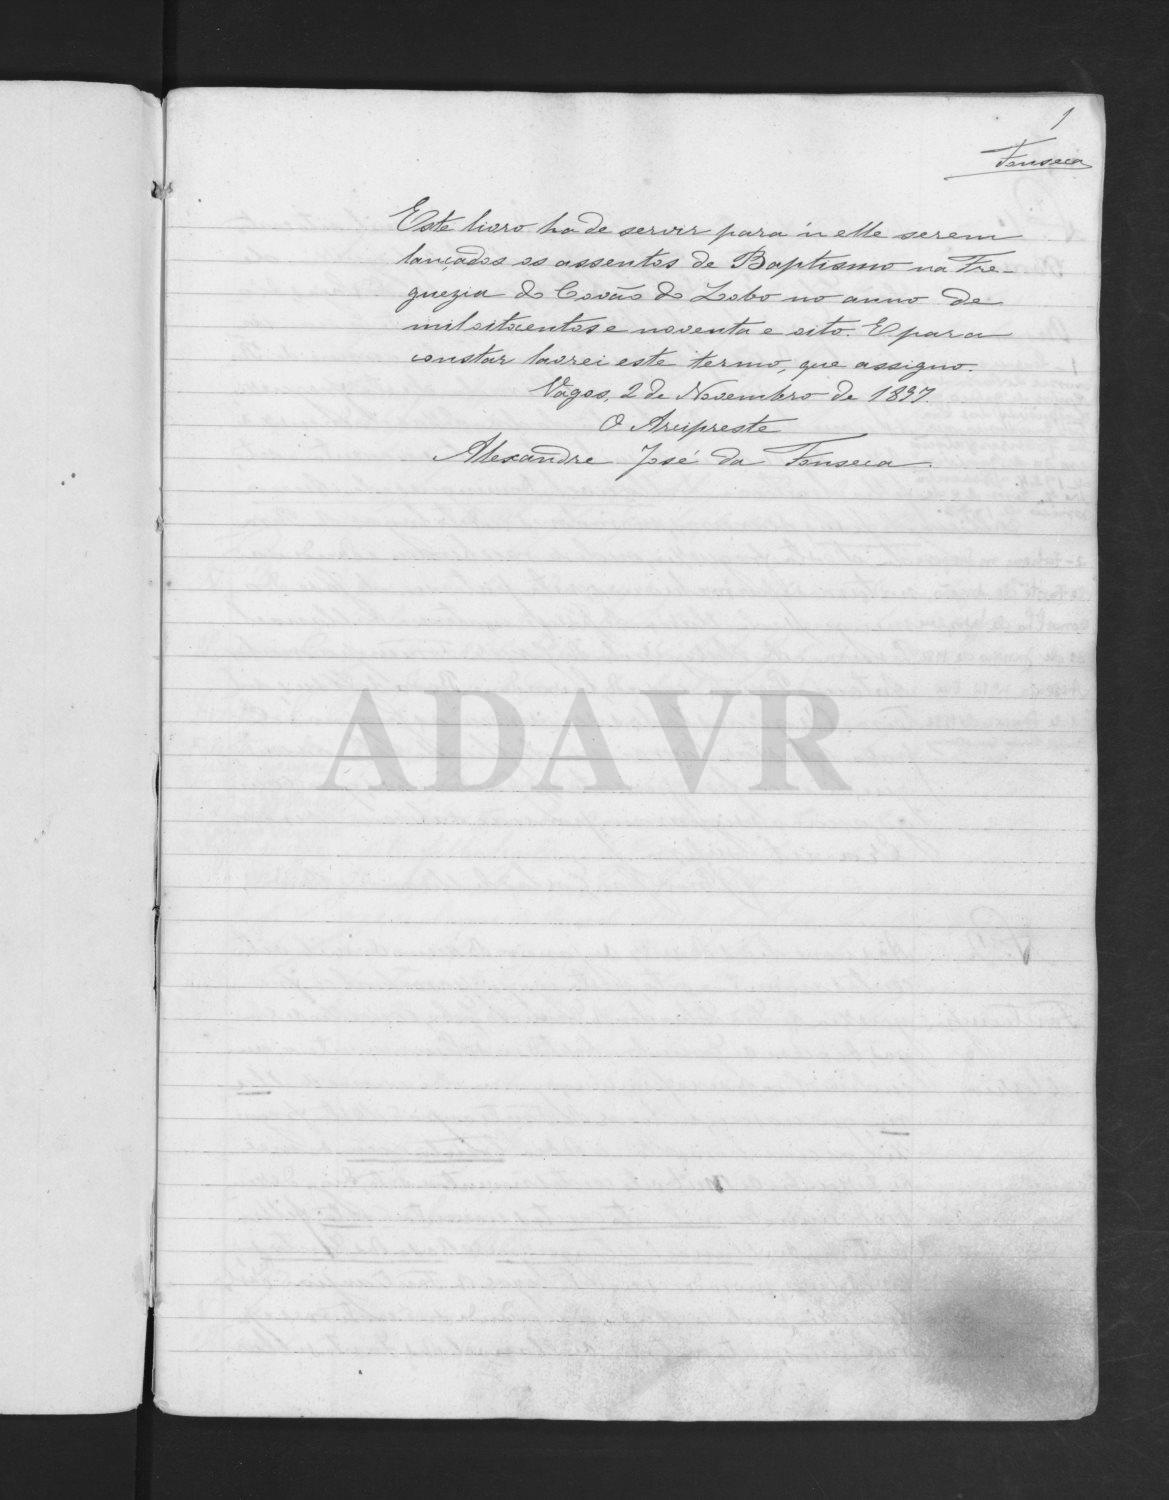 1
Fonseca
Este livro ha de servir para n'elle serem
lançados os assentos de Baptismo na Fre-
guezia do Covão do Lobo no anno de
mil oitocentos e noventa e oito. E para
constar lavrei este termo, que assigno.
Vagos, 2 de Novembro de 1897.
O Arcipreste
Alexandre José da Fonseca.
ADAVR